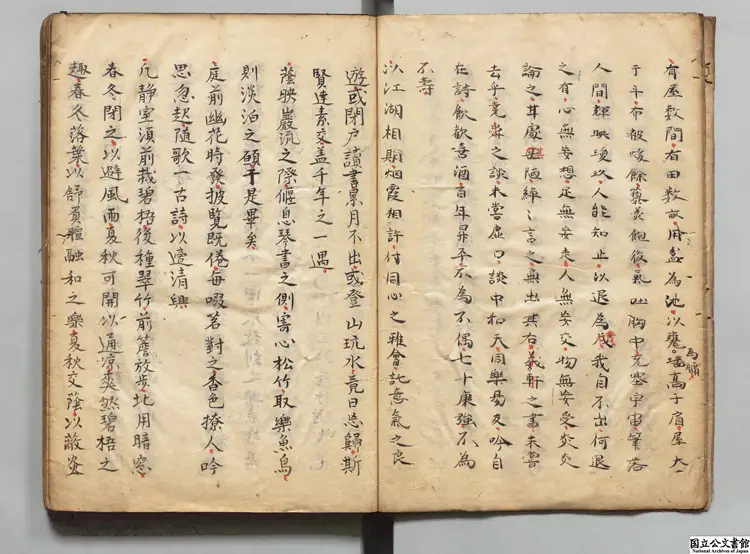 有屋数間有田数畝用盆為池以甕墻高于肩屋大
為牖
于斗布被煖餘藜羹飽後氣吐胸中充塞宇宙筆落
人間輝映瓊玖人能知止以退為茂我自不出何退
之有心無妄想足無妄走人無妄交物無妄受炎炎
論之甘處其陋綽々言之無出其右羲軒之書未嘗
去手堯舜之談未嘗虚口談中和天同樂易友吟自
在詩飲歡喜酒百年昇平不為不偶七十康強不為
不壽
以江湖相期烟霞相許付同心之雅會託意氣之良
遊或閉户讀書累月不出或登山玩水竟日忘歸斯
賢達素交盖千年之一遇
蔭映巖流之際偃息琴書之側寄心松竹取樂魚鳥
則淡泊之願于是畢矣
庭前幽花時發披覽既倦每啜茗對之香色撩人吟
思忽起隨歌一古詩以適清興
凡静室須前栽碧梧後種翠竹前簷放步北用暗窓
春冬閉之以避風雨夏秋可開以通凉爽然碧梧之
趣春冬落葉以舒負暄融和之樂夏秋交蔭以蔽
国立公文書館
National Archives of Japan